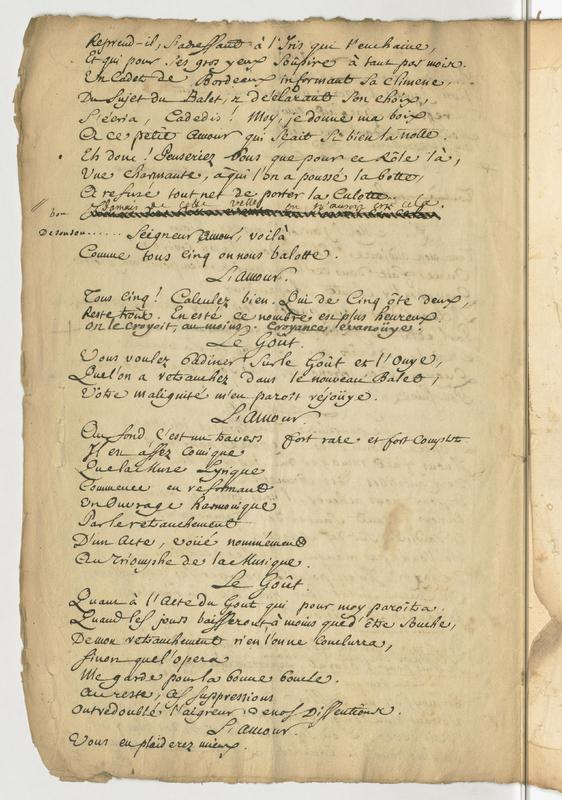 Reprend-il, S'adressant à l'Iris qui l'enchaine,
Et qui pour ses gros yeux Soupire à tant par mois.
Un Cadet de Bordeaux informant Sa climene,
Du Sujet du Balet, & déclarant Son choix,
S'écria, Cadedis! Moy, je donne ma voix
A ce petit Amour qui Scait Si bien la notte.
Eh donc! Penseriez Vous que pour ce Rôle là,
Une charmante, à qui l'on a poussé la botte,
A refusé tout net de porter la Culotte
Jamais de cette on n'auroit cru cela.
bon
De son ...... Seigneur Amour, voilà
Comme tous cinq on nous balotte.
L'Amour.
Tous Cinq! Calculez bien. Qui de Cinq ôte deux,
Reste trois. En esté ce nombre, en plus heureux.
on le Croyoit, au moins. Croyance évanoüye.
Le Goût.
Vous voulez badiner Sur le Goût et l'Ouye,
Quel'on a retranchez dans le nouveau Balet;
Votre malignité m'en paroît réjoüye.
L'Amour.
Au fond C'est un travers fort rare et fort Complet
Il en assez Comique
Que la Muse Lyrique
Commence en réformant
Un Ouvrage harmonique
Par le retranchement
D'un Acte, voüé nommément
Au Triomphe de la Musique.
Le Goût
Quant à l'Acte du Gout qui pour moy paroîtra.
Quand les jours baisseront, à moins que d'être Souche,
De mon retranchement rien l'on ne Conclurra,
Sinon quel'opera
Me garde pour la bonne bouche.
Au reste, Ces Suppressions
Ont redoublé l'aigreur de nos Dissentions.
L'Amour.
Vous en plaiderez mieux.